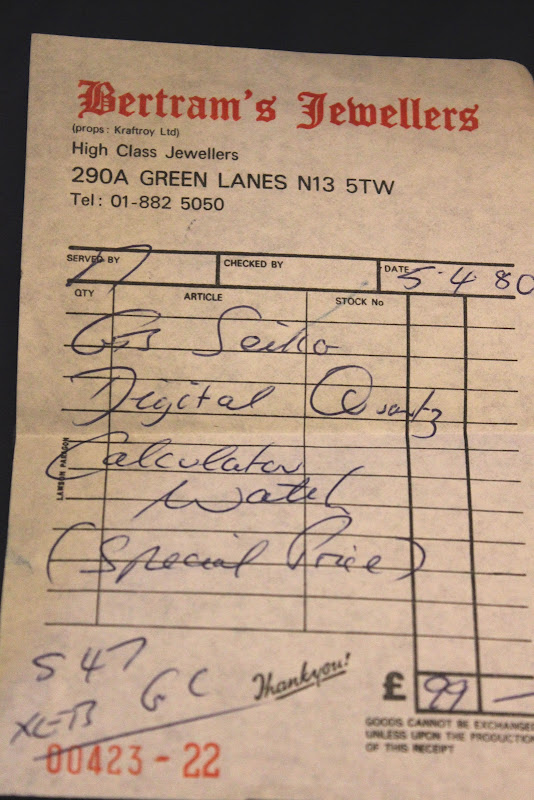 Bertram's Jewellers
(props: Kraftroy Ltd)
High Class Jewellers
290A GREEN LANES N13 5TW
Tel: 01-882 5050
SERVED BY CHECKED BY DATE 5·4·80
QTY ARTICLE STOCK No
Seiko
Digital Quartz
Calculator
Watch
(Special Price)
LAMSON PARAGON
S 47
GC
Thankyou!
£ 99 —
GOODS CANNOT BE EXCHANGED
UNLESS UPON THE PRODUCTION
OF THIS RECEIPT
00423 - 22